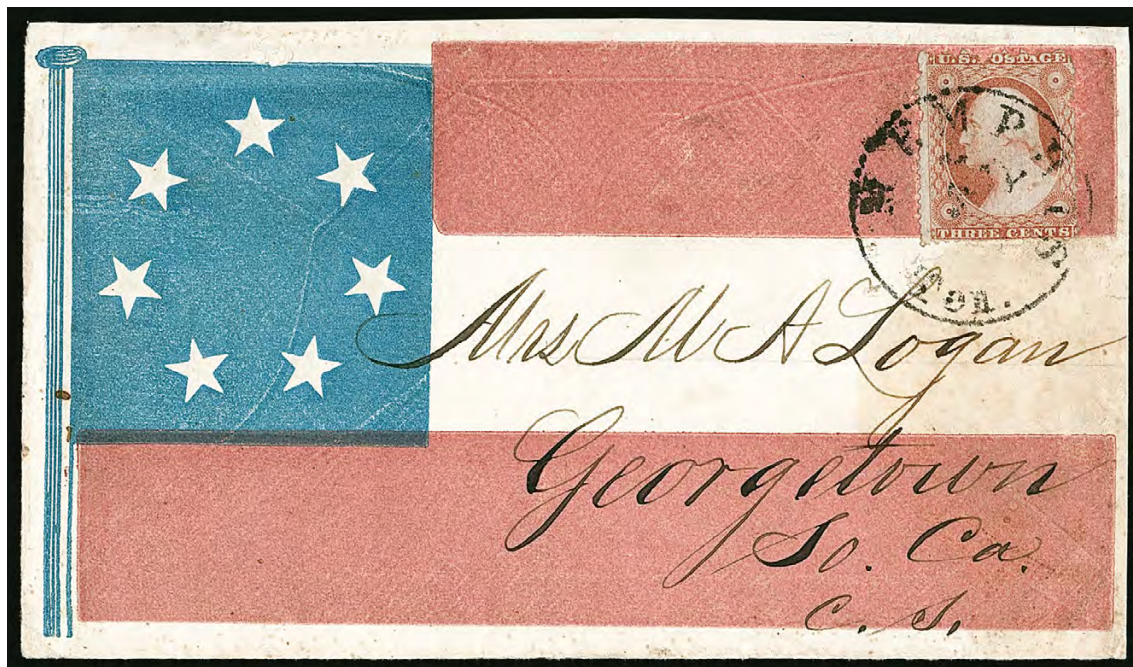 U.S. POSTAGE
THREE CENTS
MEMPHIS
Mrs M A Logan
Georgetown
So. Ca.
C. S.